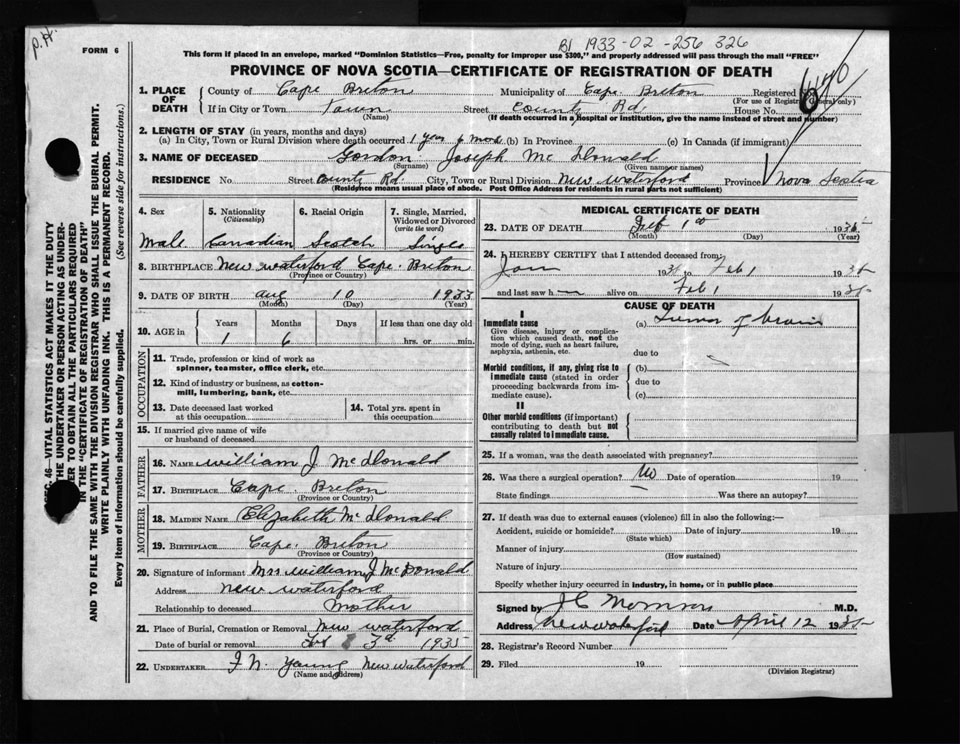 P.H.
FORM 6
B1 1933-02-256 326
This form if placed in an envelope, marked "Dominion Statistics—Free, penalty for improper use $300," and properly addressed will pass through the mail "FREE"
PROVINCE OF NOVA SCOTIA—CERTIFICATE OF REGISTRATION OF DEATH
1. PLACE OF DEATH
County of Cape Breton Municipality of Cape Breton Registered No.
(For use of Registrar General only)
If in City or Town Town Street County Rd House No.
(Name) (If death occurred in a hospital or institution, give the name instead of street and number)
2. LENGTH OF STAY (in years, months and days)
(a) In City, Town or Rural Division where death occurred 1 year 6 mos (b) In Province (c) In Canada (if immigrant)
3. NAME OF DECEASED Gordon Joseph McDonald
(Surname) (Given name or names)
RESIDENCE No. Street County Rd. City, Town or Rural Division New Waterford Province Nova Scotia
(Residence means usual place of abode. Post Office Address for residents in rural parts not sufficient)
4. Sex 5. Nationality (Citizenship) 6. Racial Origin 7. Single, Married, Widowed or Divorced (write the word)
Male Canadian Scotch Single
8. BIRTHPLACE New Waterford Cape Breton
(Province or Country)
9. DATE OF BIRTH Aug 10 1933
(Month) (Day) (Year)
10. AGE in Years Months Days If less than one day old
1 6 hrs. or min.
OCCUPATION
11. Trade, profession or kind of work as spinner, teamster, office clerk, etc.
12. Kind of industry or business, as cotton-mill, lumbering, bank, etc.
13. Date deceased last worked at this occupation
14. Total yrs. spent in this occupation
15. If married give name of wife or husband of deceased
FATHER
16. NAME William J McDonald
17. BIRTHPLACE Cape Breton
(Province or Country)
MOTHER
18. MAIDEN NAME Elizabeth McDonald
19. BIRTHPLACE Cape Breton
(Province or Country)
20. Signature of informant Mrs William J McDonald
Address New Waterford
Relationship to deceased Mother
21. Place of Burial, Cremation or Removal New Waterford
Date of burial or removal Feb 3rd 1935
22. UNDERTAKER Young New Waterford
(Name and address)
MEDICAL CERTIFICATE OF DEATH
23. DATE OF DEATH Feb 1 1935
(Month) (Day) (Year)
24. I HEREBY CERTIFY that I attended deceased from
Jan 19 to Feb 1 1935
and last saw h alive on Feb 1 1935
CAUSE OF DEATH
I
Immediate cause
Give disease, injury or complication which caused death, not the mode of dying, such as heart failure, asphyxia, asthenia, etc.
(a) Tumor of brain
due to
Morbid conditions, if any, giving rise to immediate cause (stated in order proceeding backwards from immediate cause).
(b)
due to
(c)
II
Other morbid conditions (if important) contributing to death but not causally related to immediate cause.
25. If a woman, was the death associated with pregnancy?
26. Was there a surgical operation? No Date of operation 19
State findings Was there an autopsy?
27. If death was due to external causes (violence) fill in also the following:—
Accident, suicide or homicide? Date of injury 19
(State which)
Manner of injury
(How sustained)
Nature of injury
Specify whether injury occurred in industry, in home, or in public place
Signed by M.D.
Address New Waterford Date April 12 1935
28. Registrar's Record Number
29. Filed 19
(Division Registrar)
SEC. 46—VITAL STATISTICS ACT MAKES IT THE DUTY
THE UNDERTAKER OR PERSON ACTING AS UNDER-
TO OBTAIN ALL THE PARTICULARS REQUIRED
IN THE "CERTIFICATE OF REGISTRATION OF DEATH"
AND TO FILE THE SAME WITH THE DIVISION REGISTRAR WHO SHALL ISSUE THE BURIAL PERMIT.
WRITE PLAINLY WITH UNFADING INK. THIS IS A PERMANENT RECORD.
Every item of information should be carefully supplied. (See reverse side for instructions.)